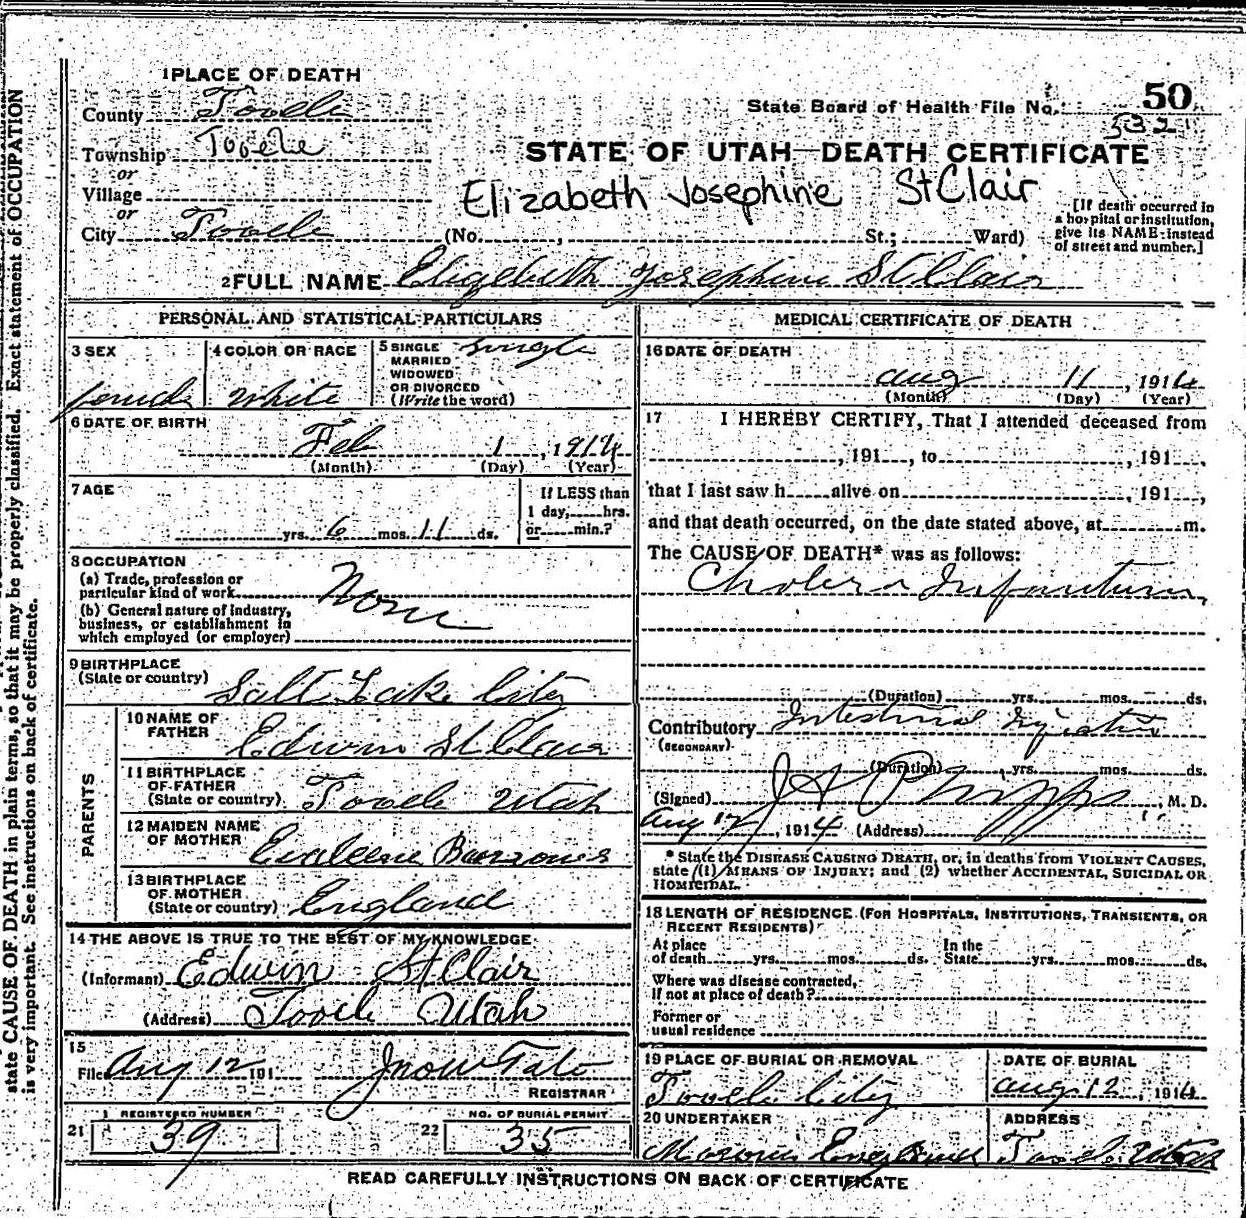 state CAUSE OF DEATH in plain terms, so that it may be properly classified. Exact statement of OCCUPATION
is very important. See instructions on back of certificate.
1 PLACE OF DEATH
County Tooele
Township Tooele
or
Village
or
City Tooele
State Board of Health File No. 50
532
STATE OF UTAH—DEATH CERTIFICATE
Elizabeth Josephine StClair
(No. , St.; Ward)
[If death occurred in
a hospital or institution,
give its NAME instead
of street and number.]
2 FULL NAME Elizebeth Josephine St Clair
PERSONAL AND STATISTICAL PARTICULARS
3 SEX
female
4 COLOR OR RACE
White
5 SINGLE Single
MARRIED
WIDOWED
OR DIVORCED
(Write the word)
6 DATE OF BIRTH
Feb 1, 1914
(Month) (Day) (Year)
7 AGE
yrs. 6 mos. 11 ds.
If LESS than
1 day, hrs.
or min.?
8 OCCUPATION
(a) Trade, profession or
particular kind of work None
(b) General nature of industry,
business, or establishment in
which employed (or employer)
9 BIRTHPLACE
(State or country) Salt Lake City
PARENTS
10 NAME OF
FATHER Edwin St Clair
11 BIRTHPLACE
OF FATHER
(State or country) Tooele Utah
12 MAIDEN NAME
OF MOTHER Burrows
13 BIRTHPLACE
OF MOTHER
(State or country) England
14 THE ABOVE IS TRUE TO THE BEST OF MY KNOWLEDGE
(Informant) Edwin St Clair
(Address) Tooele Utah
15
Filed Aug 12 191
REGISTRAR
21 REGISTERED NUMBER
39
22 NO. OF BURIAL PERMIT
35
MEDICAL CERTIFICATE OF DEATH
16 DATE OF DEATH
Aug 11, 1914
(Month) (Day) (Year)
17 I HEREBY CERTIFY, That I attended deceased from
, 191 , to , 191 ,
that I last saw h alive on , 191 ,
and that death occurred, on the date stated above, at m.
The CAUSE OF DEATH* was as follows:
Cholera Infantum
(Duration) yrs. mos. ds.
Contributory Intestinal
(SECONDARY)
(Duration) yrs. mos. ds.
(Signed) J A Phipps, M. D.
Aug 12, 1914 (Address)
* State the DISEASE CAUSING DEATH, or, in deaths from VIOLENT CAUSES,
state (1) MEANS OF INJURY; and (2) whether ACCIDENTAL, SUICIDAL OR
HOMICIDAL.
18 LENGTH OF RESIDENCE (FOR HOSPITALS, INSTITUTIONS, TRANSIENTS, OR
RECENT RESIDENTS)
At place
of death yrs. mos. ds.
In the
State yrs. mos. ds.
Where was disease contracted,
If not at place of death?
Former or
usual residence
19 PLACE OF BURIAL OR REMOVAL
Tooele City
DATE OF BURIAL
Aug 12, 1914
20 UNDERTAKER
ADDRESS
Tooele Utah
READ CAREFULLY INSTRUCTIONS ON BACK OF CERTIFICATE